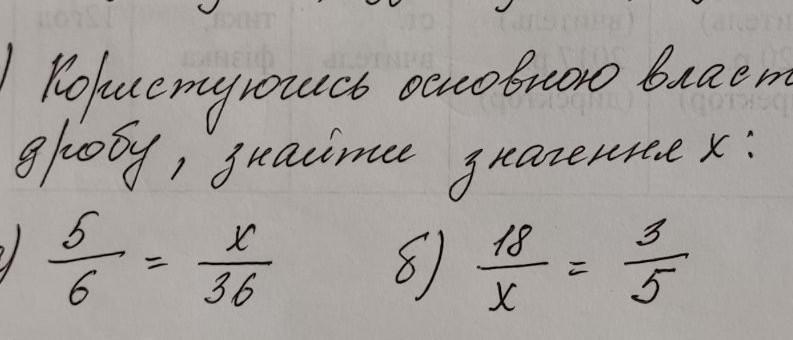 ) Користуючись основною власт
дробу, знайти значення x:
) 5/6 = x/36 б) 18/x = 3/5